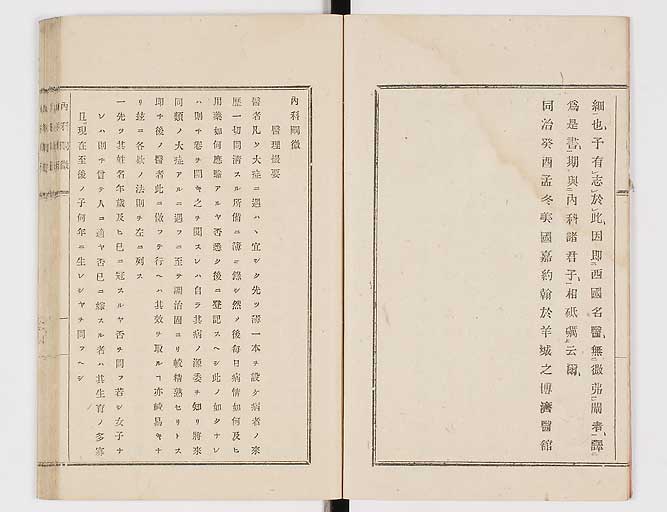 細也予有志於此因即西國名醫無微弗闡者譯
爲是書期與內科諸君子相砥礪云爾
同治癸酉孟冬美國嘉約翰於羊城之博濟醫舘
內科闡微
醫理撮要
醫者凡ソ大症ニ遇ハヽ宜シク先ツ薄一本ヲ設ケ病者ノ來
歷一切問淸スル所備ニ薄ニ錄シ然ノ後每日病情如何及ヒ
用藥如何應驗アルヤ否悉ク後ニ登記スヘシ此ノ如クナレ
ハ則チ卷ヲ開キ之ヲ閱スレハ自ラ其病ノ源委ヲ知リ將來
同類ノ大症アルニ遇フニ至テ調治固ヨリ較精熟セリトス
即チ後ノ醫者此ニ倣フテ行ヘハ其效ヲ取ルヿ亦較易キナ
リ玆ニ各欵ノ法則ヲ左ニ列ス
一先ツ其姓名年歲及ヒ已ニ冠スルヤ否ヲ問フ若シ女子ナ
レハ則チ曾テ人ニ適ヤ否已ニ嫁スル者ハ其生育ノ多寡
且現在至後ノ子何年ニ生レシヤヲ問フヘシ